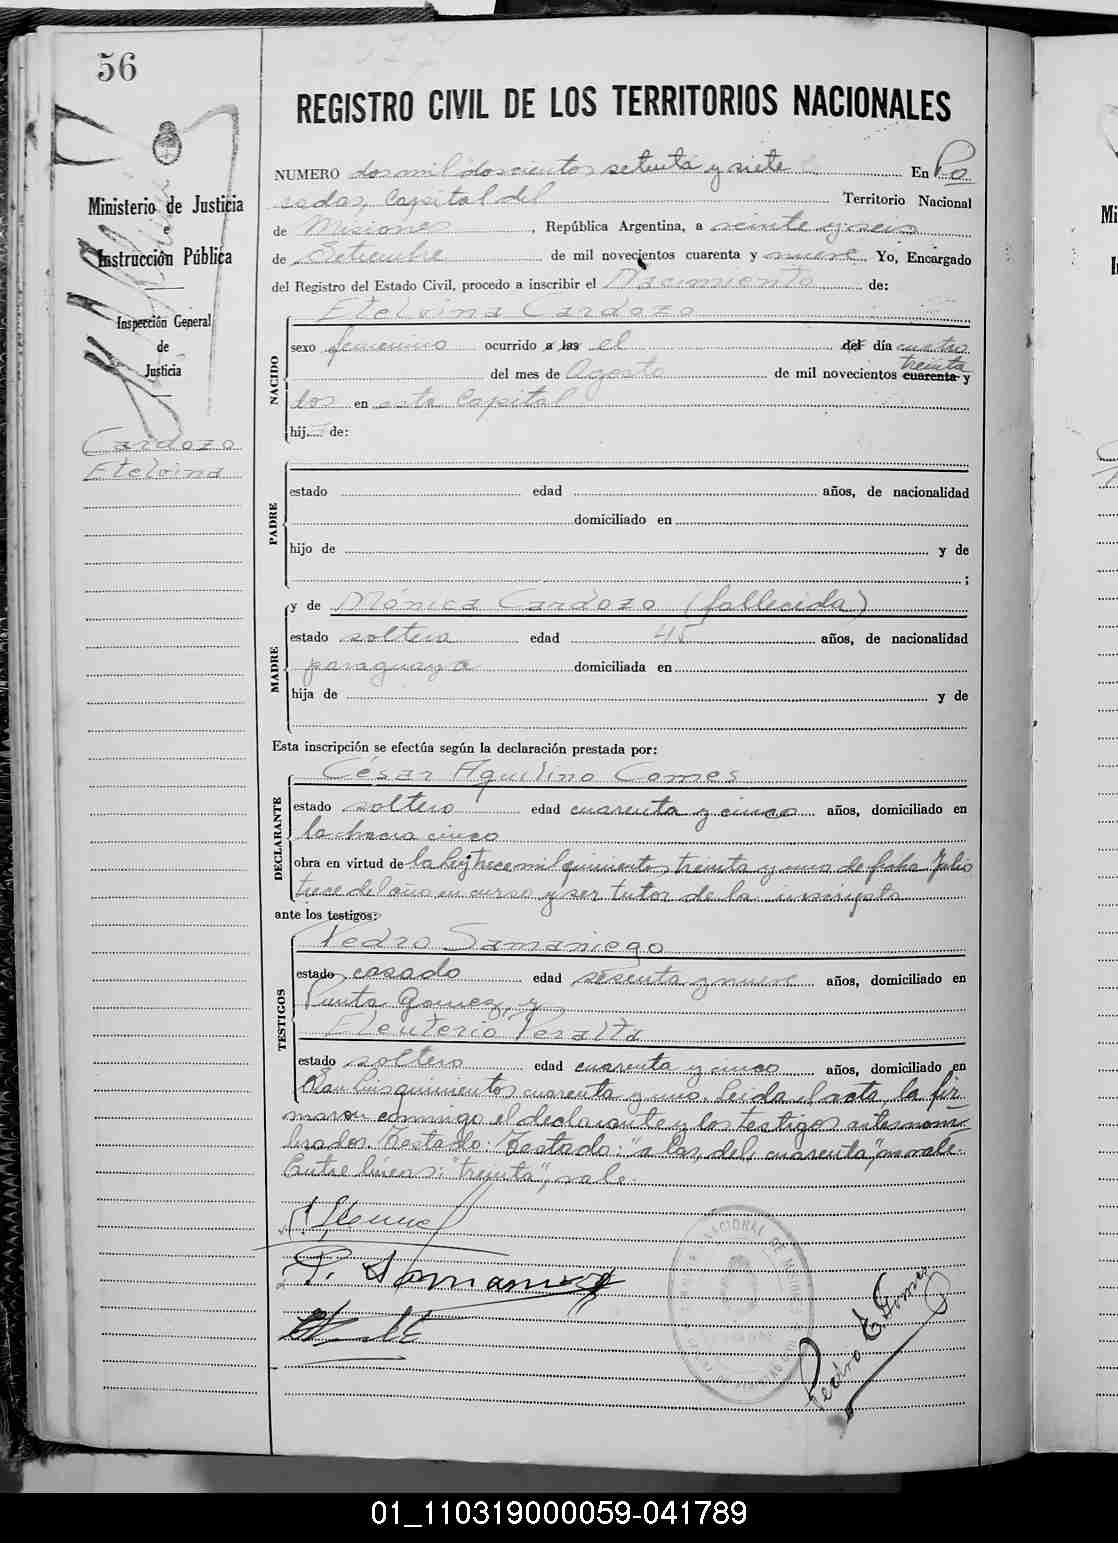 56
REGISTRO CIVIL DE LOS TERRITORIOS NACIONALES
Ministerio de Justicia
Instrucción Pública
Inspección General
de
Justicia
Cardozo
Etelvina
NUMERO dos mil doscientos setenta y siete En Po
sadas, Capital del Territorio Nacional
de Misiones, República Argentina, a veinte y seis
de Setiembre de mil novecientos cuarenta y nueve Yo, Encargado
del Registro del Estado Civil, procedo a inscribir el Nacimiento de:
Etelvina Cardozo
NACIDO
sexo femenino ocurrido a las el del día cuatro
treinta
del mes de Agosto de mil novecientos cuarenta y
dos en esta Capital
hij de:
PADRE
estado edad años, de nacionalidad
domiciliado en
hijo de y de
;
MADRE
y de Mónica Cardozo (fallecida)
estado soltera edad 45 años, de nacionalidad
paraguaya domiciliada en
hija de y de
Esta inscripción se efectúa según la declaración prestada por:
DECLARANTE
César Aquilino Comes
estado soltero edad cuarenta y cinco años, domiciliado en
la chacra cinco
obra en virtud de la Ley trece mil quinientos treinta y uno de fecha Julio
trece del año en curso y ser tutor de la inscripta
ante los testigos:
TESTIGOS
Pedro Samaniego
estado casado edad sesenta y nueve años, domiciliado en
Punta Gomez, y
Eleuterio Peralta
estado soltero edad cuarenta y cinco años, domiciliado en
San Luis quinientos cuarenta y uno. Leida el acta, la fir-
maron conmigo el declarante y los testigos antesnom-
brados. Testado: Testado: "a las, del, cuarenta", no vale.
Entre lineas: "treinta", vale.
P. Samaniego
Pedro E. Gomez
01_110319000059-041789